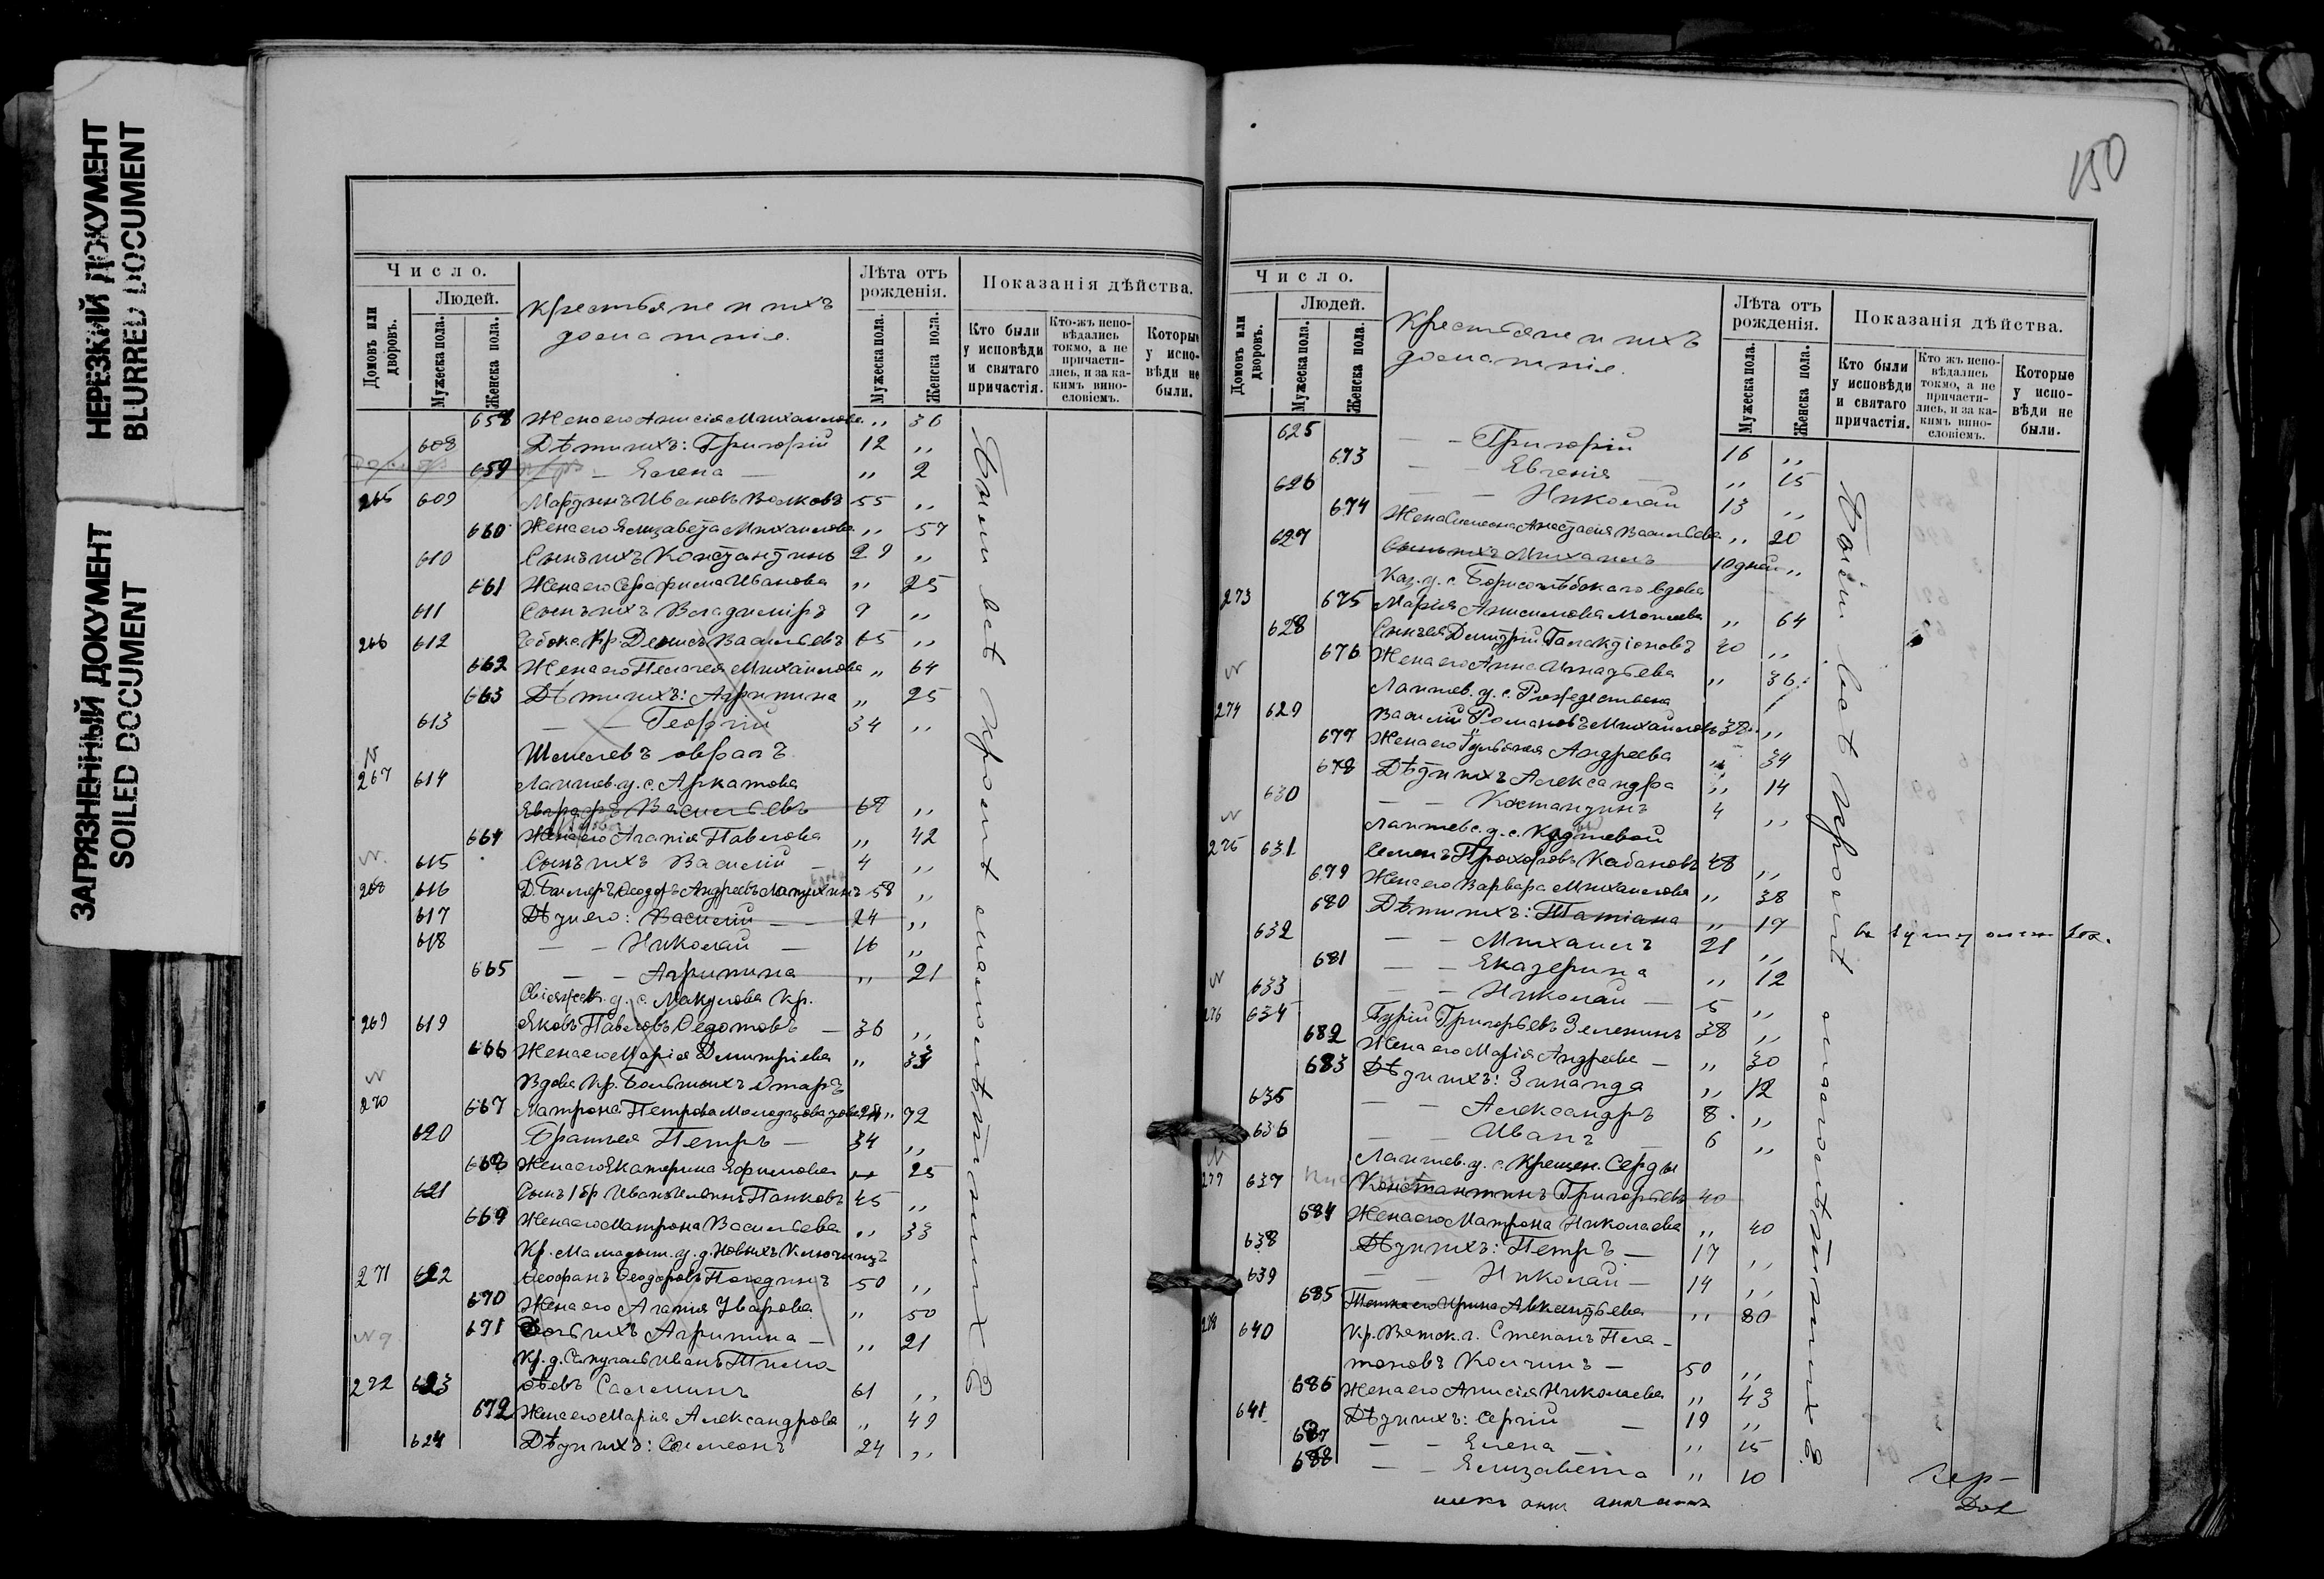 НЕРЕЗКИЙ ДОКУМЕНТ
BLURRED DOCUMENT
ЗАГРЯЗНЕННЫЙ ДОКУМЕНТ
SOILED DOCUMENT
Число.
Людей.
Домовъ или дворовъ.
Мужеска пола.
Женска пола.
Крестьяне и ихъ
домашніе.
Лѣта отъ
рожденія.
Мужеска пола.
Женска пола.
Показанія дѣйства.
Кто были
у исповѣди
и святаго
причастія.
Кто-жъ испо-
вѣдались
токмо, а не
причасти-
лись, и за ка-
кимъ вино-
словіемъ.
Которые
у испо-
вѣди не
были.
658 Жена его Анисія Михаилова „ 36
608 Дѣти ихъ: Григорій 12 „
659 — Елена — „ 2
265 609 Мардянъ Ивановъ Волковъ 55 „
660 Жена его Елизавета Михаилова „ 57
610 Сынъ ихъ Константинъ 29 „
661 Жена его Серафима Иванова „ 25
611 Сынъ ихъ Владиміръ 9 „
266 612 Кр. Денисъ Васильевъ 65 „
662 Жена его Пелагея Михаилова „ 64
663 Дѣти ихъ: Агрипина „ 25
613 — — Георгій 34 „
N Шмелевъ оврагъ
267 614 Лаишев. у. с. Аркатова
Евграфъ Васильевъ 68 „
664 Жена его Агапія Павлова „ 42
N. 615 Сынъ ихъ Василій — 4 „
268 616 Ѳеодоръ Андреевъ Лапухинъ 58 „
617 Дѣти его: Василій — — 24 „
618 — — Николай — 16 „
665 — — Агрипина „ 21
Свіяжск. у. с. Макулова Кр.
269 619 Яковъ Павловъ Ѳедотовъ — 36 „
666 Жена его Марія Димитріева „ 33
N Вдова Кр. Большихъ Отаръ
270 667 Матрона Петрова „ 72
620 Братъ ея Петръ — 34 „
668 Жена его Екатерина Ефимова „ 25
621 Панковъ 45 „
669 Жена его Матрона Васильева „ 33
Кр. Мамадыш. у. д. Новыхъ
271 622 Ѳеофанъ Ѳеодоровъ 50 „
670 Жена его Агапія Уварова „ 50
671 Дочь ихъ Агрипина — „ 21
Кр. д. Иванъ Тимо-
272 623 ѳеевъ 61 „
672 Жена его Марія Александрова „ 49
624 Дѣти ихъ: Симеонъ 24 „
Были всѣ кромѣ малолѣтнихъ
150
Число.
Людей.
Домовъ или дворовъ.
Мужеска пола.
Женска пола.
Крестьяне и ихъ
домашніе.
Лѣта отъ
рожденія.
Мужеска пола.
Женска пола.
Показанія дѣйства.
Кто были
у исповѣди
и святаго
причастія.
Кто жъ испо-
вѣдались
токмо, а не
причасти-
лись, и за ка-
кимъ вино-
словіемъ.
Которые
у испо-
вѣди не
были.
625 — — Григорій 16 „
673 — — Евгенія „ 15
626 — — Николай 13 „
674 Жена Симеона Анастасія Васильева „ 20
627 Сынъ ихъ Михаилъ 10 дней „
Каз. у. с. Борисоглѣбскаго вдова
273 675 Марія Анисимова „ 64
628 Сынъ ея Димитрій Галактіоновъ 40 „
676 Жена его Анна Игнатьева „ 36
N Лаишев. у. с. Рождествена
274 629 Василій Романовъ Михаиловъ 38 „
677 Жена его Андреева „ 34
678 Дѣти ихъ Александра „ 14
630 — — Костантинъ 4 „
N Лаишевс. у. с.
275 631 Семенъ Прохоровъ Кабановъ 48 „
679 Жена его Варвара Михаилова „ 38
680 Дѣти ихъ: Татіана „ 17
632 — — Михаилъ 21 „
681 — — Екатерина „ 12
N 633 — — Николай — 5 „
276 634 Гурій Григорьевъ Зеленинъ 38 „
682 Жена его Марія Андреева — „ 30
683 Дѣти ихъ: Зинаида „ 12
635 — — Александръ 8 „
636 — — Иванъ — 6 „
N Лаишев. у. с. Крещен. Серды
277 637 Константинъ Григорьевъ 40
684 Жена его Матрона Николаева „ 40
638 Дѣти ихъ: Петръ — 17 „
639 — Николай — 14 „
685 Ирина „ 80
278 640 Кр. Вятск. г. Степанъ Пла-
тоновъ — 50 „
686 Жена его Анисія Николаева „ 43
641 Дѣти ихъ: Сергій — 19 „
687 — — Елена — „ 15
688 — — Елизавета „ 10
Были всѣ кромѣ малолѣтнихъ